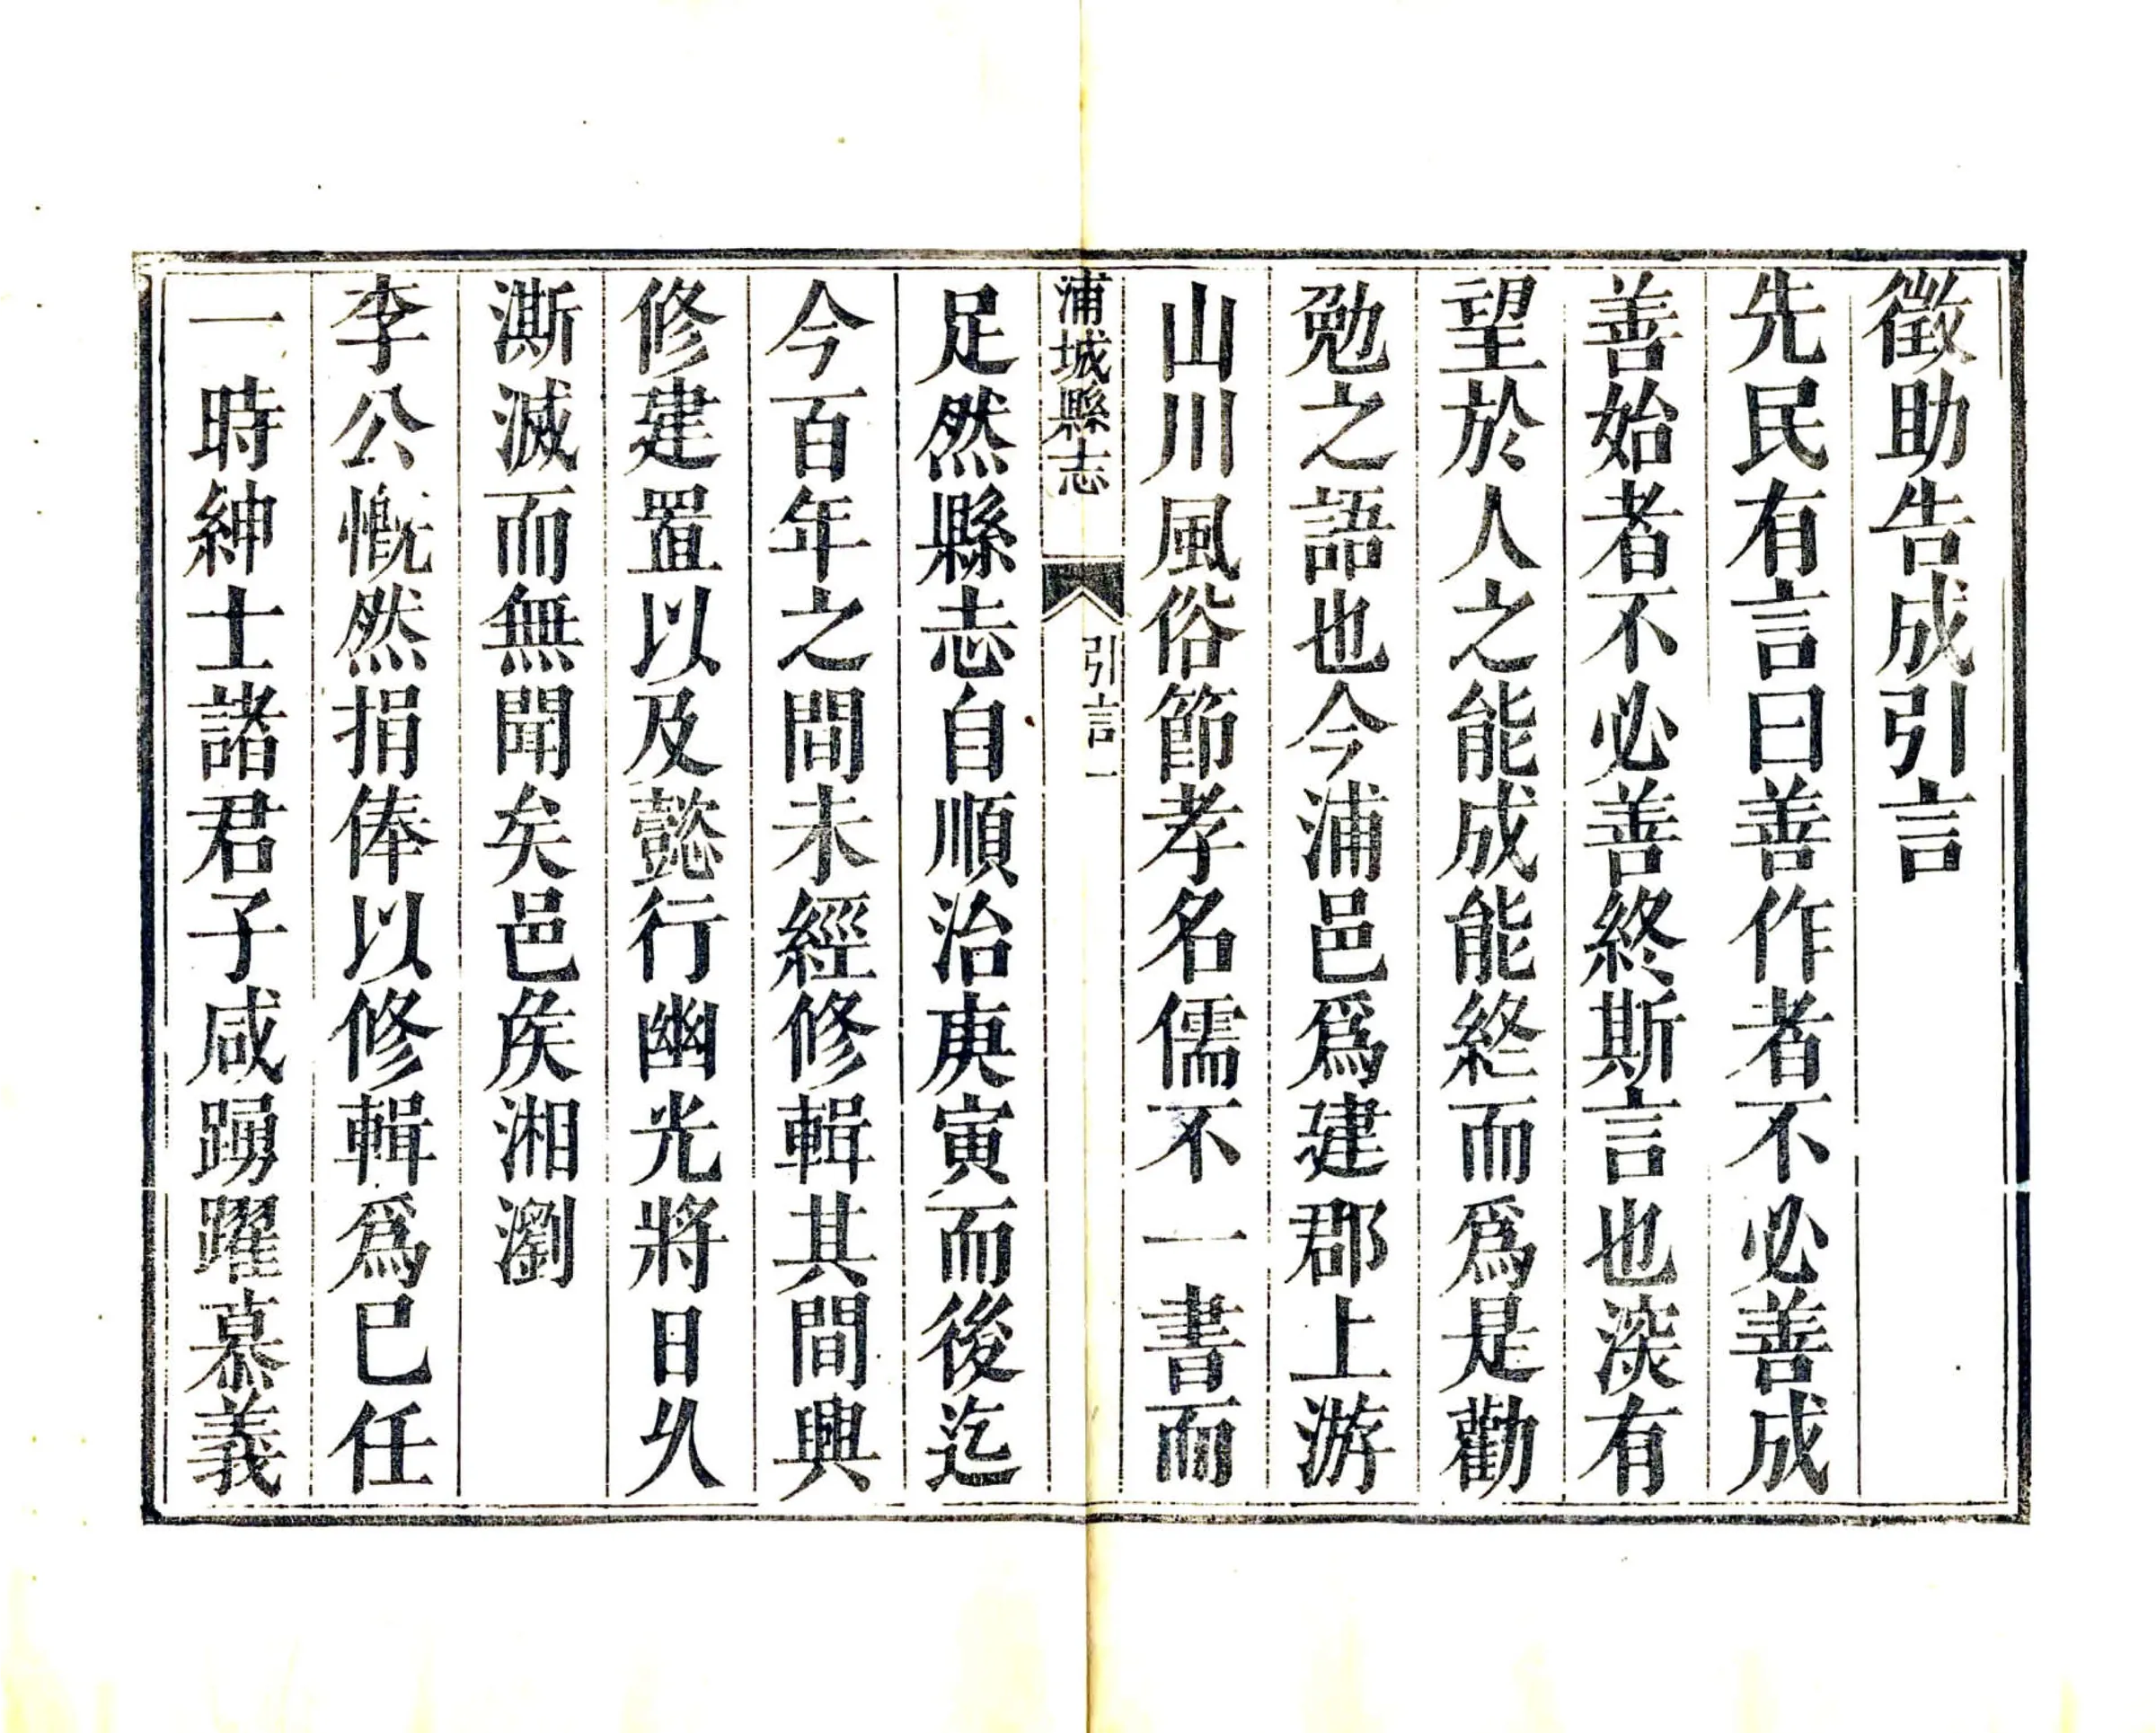 徵助告成引言
先民有言曰善作者不必善成
善始者不必善終斯言也深有
望於人之能成能終而爲是勸
勉之語也今浦邑爲建郡上游
山川風俗節孝名儒不一書而
浦城縣志 引言 一
足然縣志自順治庚寅而後迄
今百年之間未經修輯其間興
修建置以及懿行幽光將日乆
澌滅而無聞矣邑矦湘瀏
李公慨然捐俸以修輯爲已任
一時紳士諸君子咸踴躍慕義